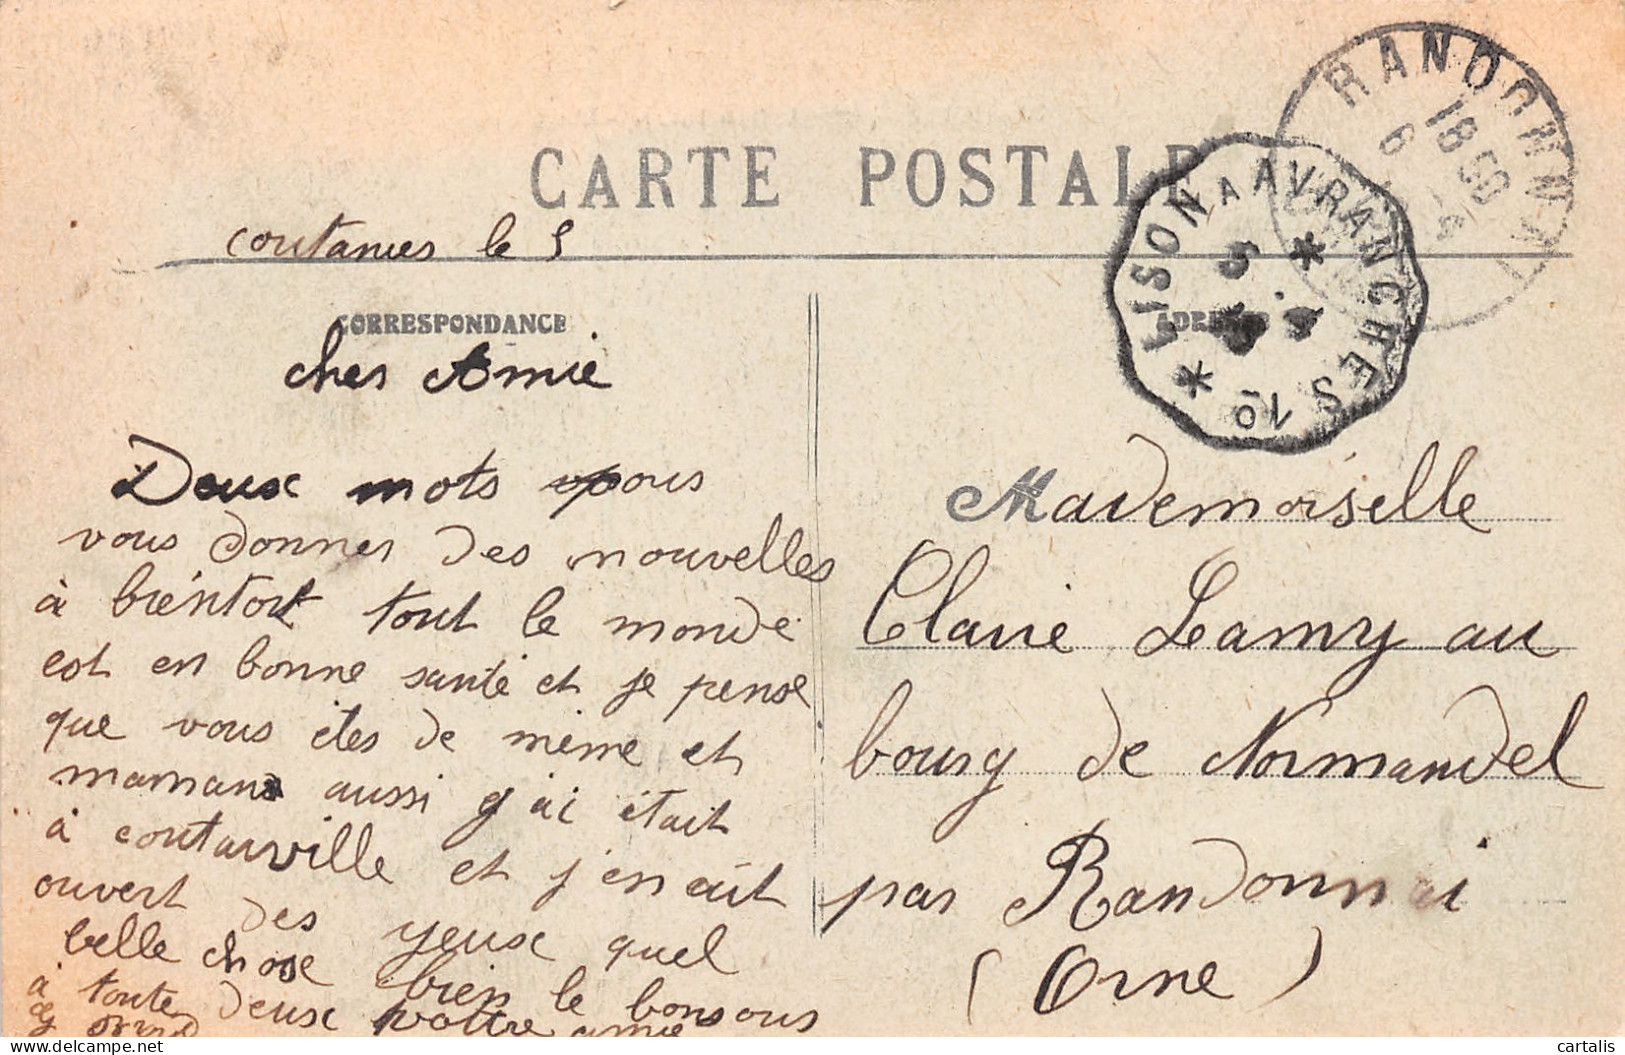 CARTE POSTALE
coutances le 5
CORRESPONDANCE
cher Amie
Deux mots pous
vous donner des nouvelles
à bientot tout le monde
est en bonne santé et je pense
que vous êtes de même et
maman aussi g'ai était
à coutainville et j'en eùt
ouvert des yeux quel
belle chose bien le bonsous
à toute deux vottre amie
LISON A AVRANCHES
5
1º
RANDONN
18 00
6
ADRESSE
Mademoiselle
Claire Lamy au
bourg de Normandel
par Randonnai
(Orne)
cartalis